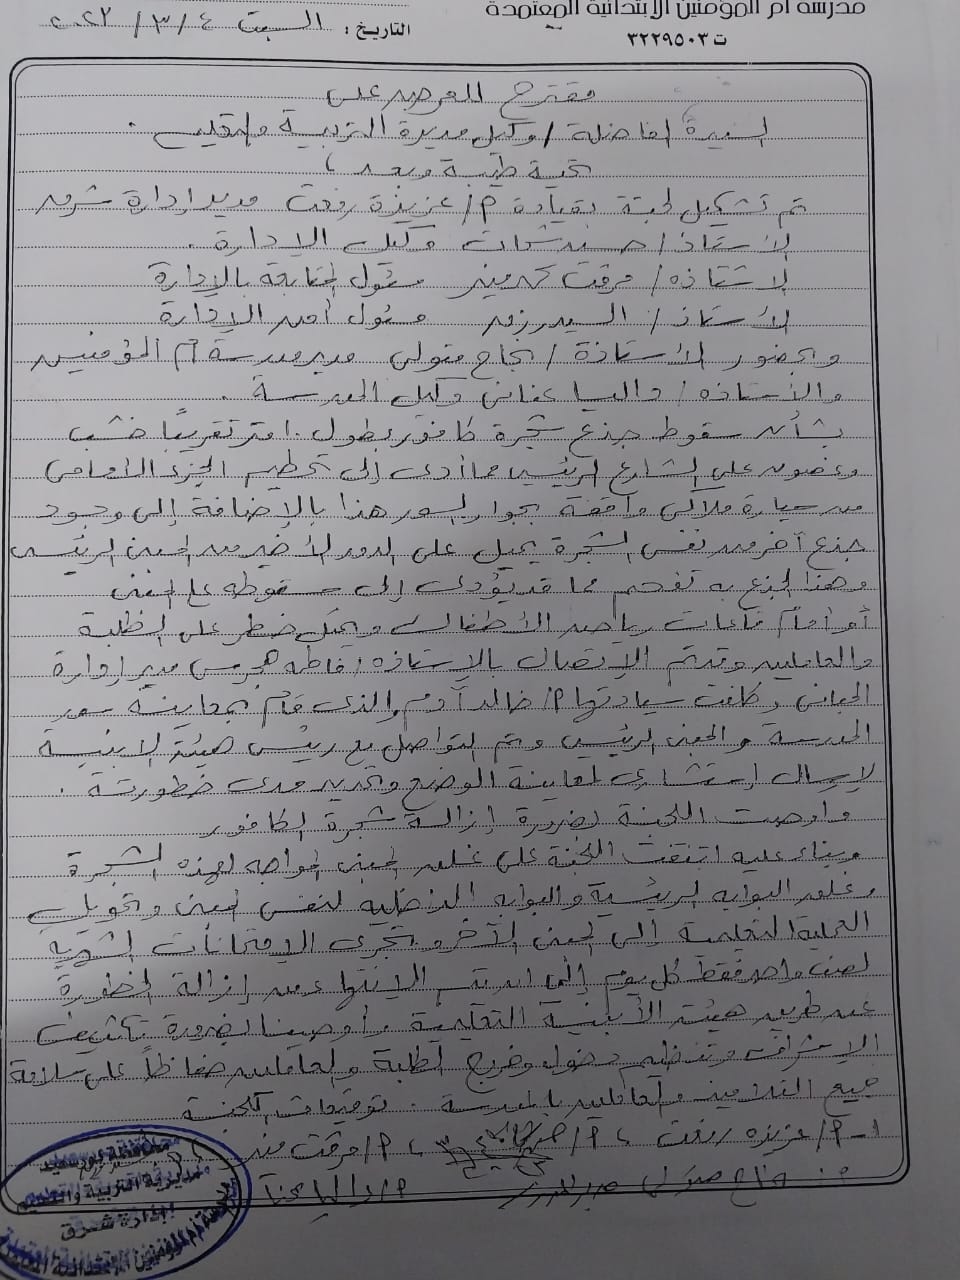 مدرسة أم المؤمنين الإبتدائية المعتمدة
ت ٣٢٢٩٥٠٣
التاريخ: السبت ٤ / ٣ / ٢٠٢٣
مقترح للعرض على
السيدة الفاضلة / وكيل مديرة التربية والتعليم .
تحية طيبة وبعد ،
تم تشكيل لجنة بقيادة م/ عزيزة رفعت مدير إدارة شرق
الأستاذ / وكيل الإدارة .
الاستاذه / مرفت مسئول المتابعة بالإدارة
الأستاذ / السيد مسئول أمن الإدارة
وبحضور الأستاذة / نجاح متولى مدير مدرسة أم المؤمنين
والأستاذه / داليا عنانى وكيل المدرسة .
بشأن سقوط جذع شجرة كافور بطول ١٠ متر تقريباً خشب
وغصون على الشارع الرئيسى مما أدى إلى تحطيم الجزء الأمامى
من سيارة ملاكى واقفة بجوار السور هذا بالإضافة إلى وجود
جذع آخر من نفس الشجرة يميل على الدور الأخير من المبنى الرئيسى
وهذا الجذع به تفحم مما قد يؤدى إلى سقوطه على المبنى
أو أمام قاعات رياض الأطفال ويمثل خطر على الطلبة
والعاملين وقد تم الإتصال بالاستاذه / فاطمه مدير إدارة
المبانى وكلفت سيادتها م/ خالد آدم والذى قام بمعاينة سور
المدرسة والمبنى الرئيسى وتم التواصل مع رئيس هيئة الابنية
لإرسال إستشارى لمعاينة الوضع وتحديد مدى خطورتة .
وأوصت اللجنة بضرورة إزالة شجرة الكافور
وبناء عليه اتفقت اللجنة على غلق المبنى المواجه لهذه الشجرة
وغلق البوابه الرئيسية والبوابه الداخلية لنفس المبنى وتحويل
العملية التعليمية إلى المبنى الآخر وتجرى الإمتحانات الشهرية
لصف واحد فقط كل يوم إلى أن يتم الانتهاء من إزالة الخطورة
عن طريق هيئة الأبنية التعليمية وأوصينا بضرورة تكثيف
الإشراف وتنظيم دخول وخروج الطلبة والعاملين حفاظاً على سلامة
جميع التلاميذ والعاملين بالمدرسة . توقيعات اللجنة
١- م/ عزيزه رفعت ، م/ ، م/ مرفت
نجاح متولى م/ داليا
محافظة بورسعيد
مديرية التربية والتعليم
إدارة شرق
مدرسة أم المؤمنين الابتدائية المعتمدة